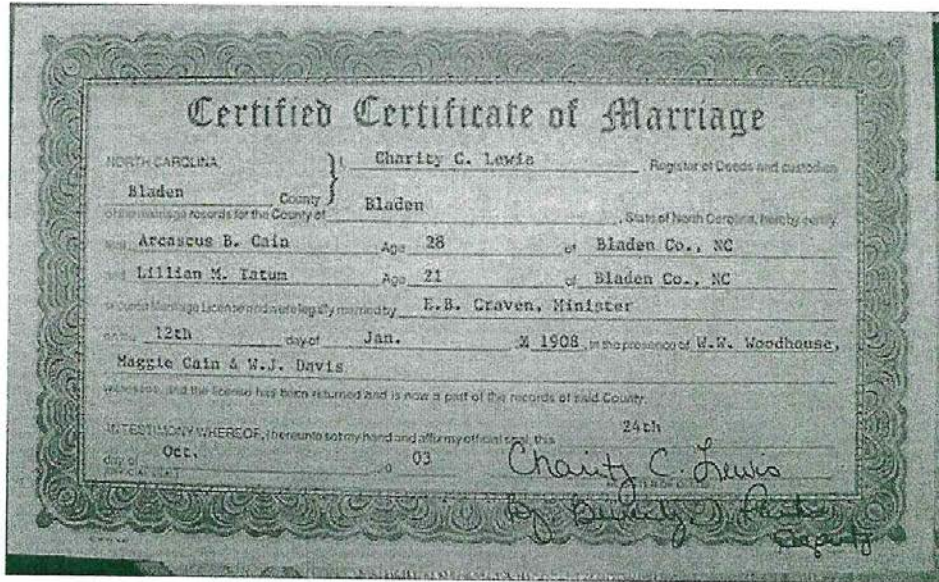 Certified Certificate of Marriage
NORTH CAROLINA, } I, Charity C. Lewis , Register of Deeds and custodian
Bladen County
of the marriage records for the County of Bladen , State of North Carolina, hereby certify
that Arcascus B. Cain Age 28 of Bladen Co., NC
and Lillian M. Tatum Age 21 of Bladen Co., NC
Marriage License and were legally married by E.B. Craven, Minister
on the 12th day of Jan. 1908, in the presence of W.W. Woodhouse,
Maggie Cain & W.J. Davis
witnesses, and the license has been returned and is now a part of the records of said County.
IN TESTIMONY WHEREOF, I hereunto set my hand and affix my official seal, this 24th
day of Oct. 03
Charity C. Lewis
By Beverly
Deputy